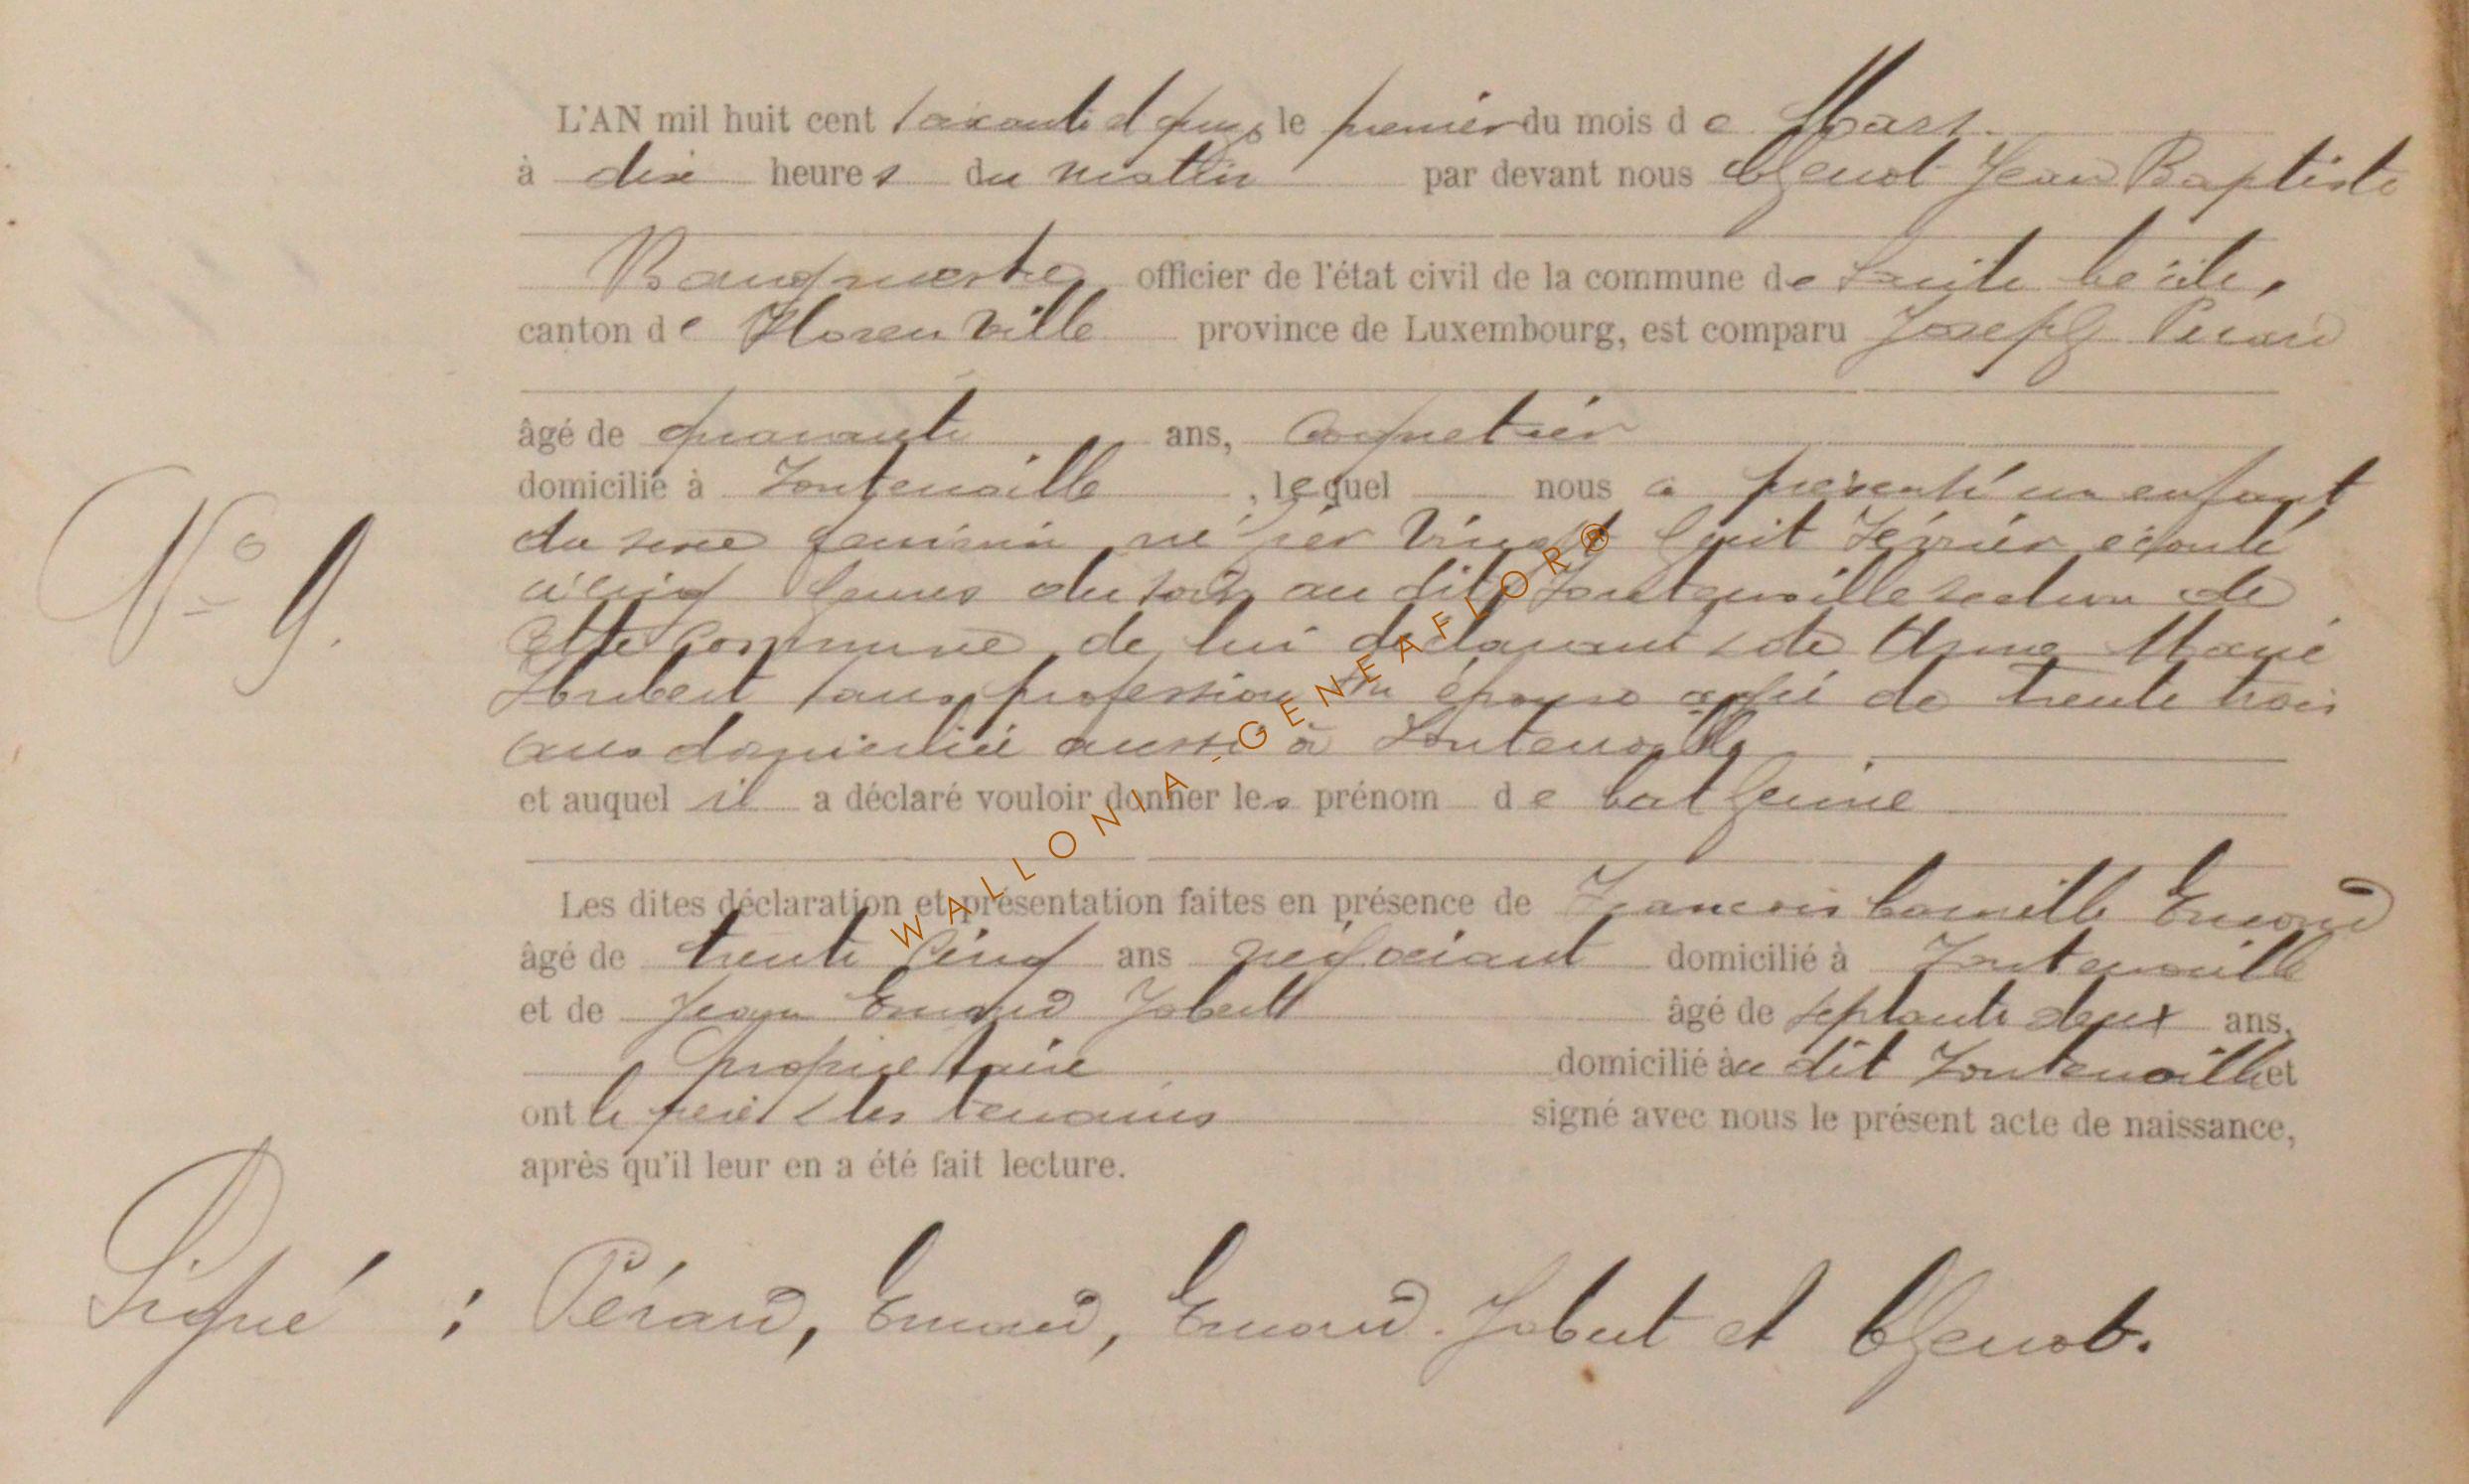 L'AN mil huit cent soixante et le premier du mois de Mars
à dix heures du matin par devant nous Jean Baptiste
Bourgmestre officier de l'état civil de la commune de Sainte Cécile,
canton de Florenville province de Luxembourg, est comparu Joseph Perard
âgé de quarante ans, Coquetier
domicilié à Fontenoille, lequel nous a présenté un enfant
du sexe féminin né hier vingt huit Février écoulé
à cinq heures du soir au dit Fontenoille section de
Cette Commune de lui déclarant & de Anne Marie
sans profession son épouse agée de trente trois
ans domiciliée aussi à Fontenoille
et auquel il a déclaré vouloir donner les prénom de Catherine
Les dites déclaration et présentation faites en présence de Francois Camille Emond
âgé de trente Cinq ans négociant domicilié à Fontenoille
et de Jean Emond Jobert âgé de septante deux ans,
propriétaire domicilié au dit Fontenoille et
ont le père & les temoins signé avec nous le présent acte de naissance,
après qu'il leur en a été fait lecture.
N° 9.
Signé : Pérard, Emond, Emond. Jobert et
WALLONIA-GENEAFLOR®